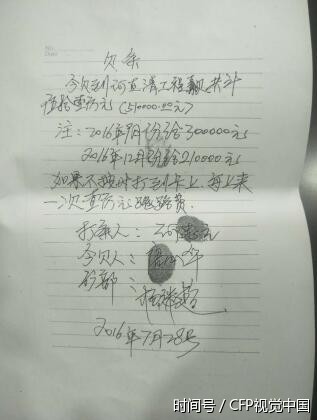 欠条
今欠到河直清工程款共计
伍拾壹万元(510000.00元)
注:2016年9月份给300000元
2016年12月份给210000元
如果不按时打到卡上,每上来
一次壹万元跑路费.
打条人:
今欠人:
2016年7月28号
时间号/CFP视觉中国